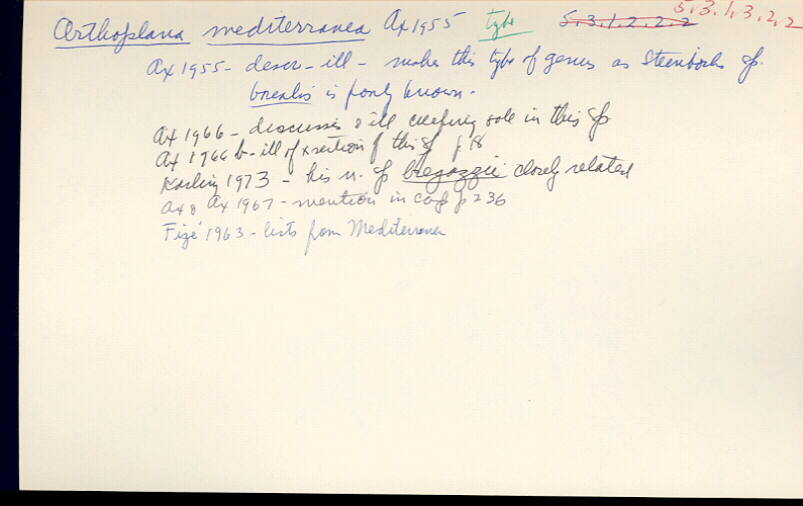 5.3.1.3.2.2
Orthoplana mediterranea Ax 1955 type 5.3.1.2.2.2
Ax 1955 - descr - ill - makes this type of genus as Steinböcks sp.
borealis is poorly known.
Ax 1966 - discusses & ill creeping sole in this sp
Ax 1966 b - ill of x section of this sp p 18
Karling 1973 - his n. sp bregazzii closely related
Ax & Ax 1967 - mention in cap p 236
Fizé 1963 - lists from Mediterranea